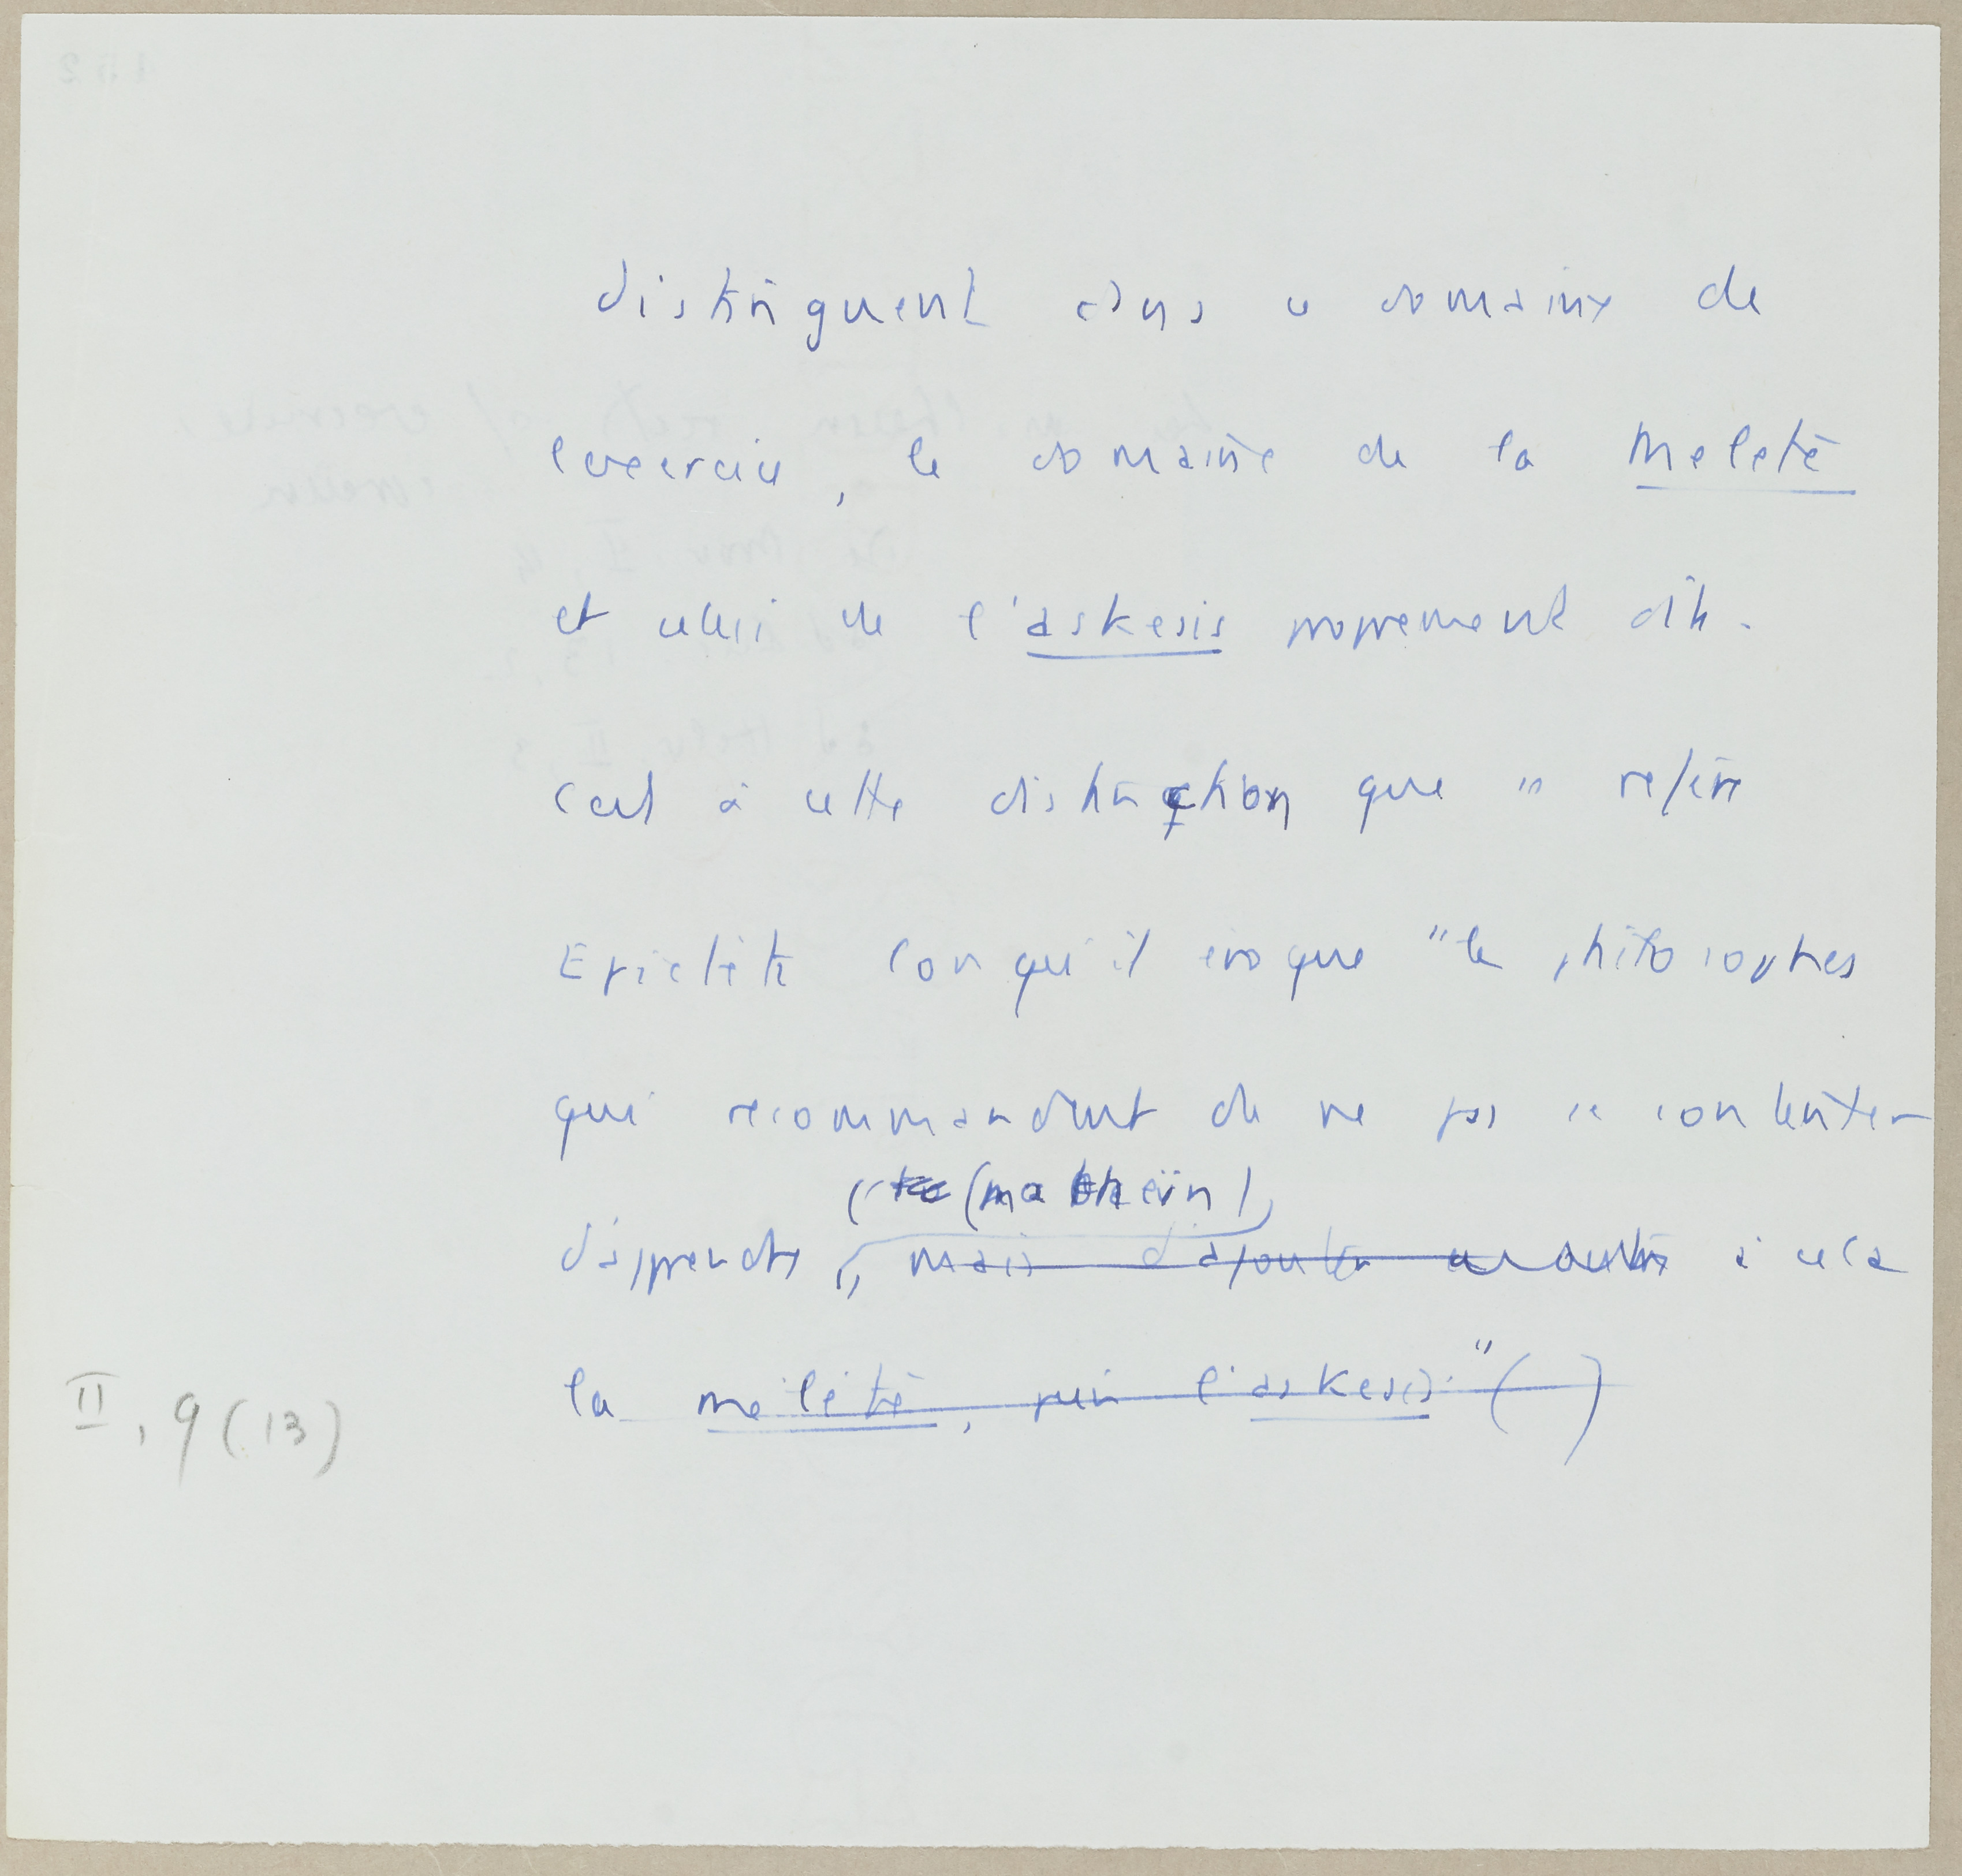 distinguent dans ce domaine de
l'exercice, le domaine de la meletè
et celui de l'askesis proprement dite.
C'est à cette distinction que se refère
Epictète lorsqu'il évoque "les philosophes
qui recommandent de ne pas se contenter
(mathein)
d'apprendre, mais d'ajouter à cela
la mélétè, puis l'askesis." ( )
II, 9 (13)